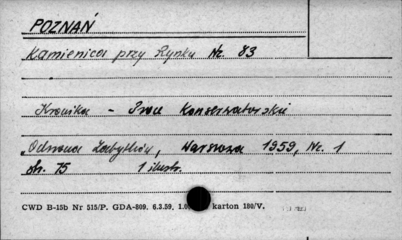 POZNAŃ
Kamienica przy Rynku Nr. 83
Kronika - Prace Konserwatorskie
"Ochrona Zabytków, Warszawa 1959, Nr. 1
str. 75 1 ilustr.
CWD B-15b Nr 515/P. GDA-809. 6.3.59, karton 180/V.